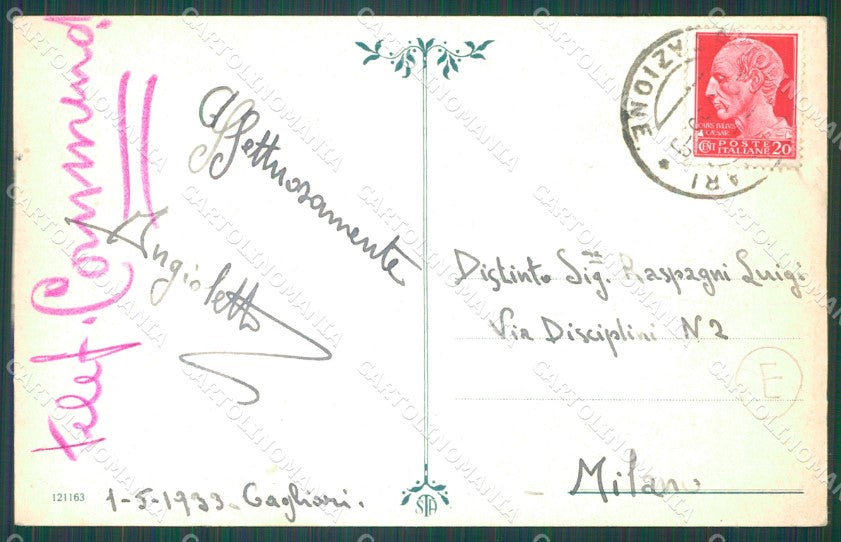 Telef. Commend.
Affettuosamente
Angioletto
1-5-1933. Cagliari.
121163
STA
AZIONE
ARI
CAIVS IVLIVS
CAESAR
POSTE
CENT ITALIANE 20
Distinto Sig.ne Raspagni Luigi
Via Disciplini N 2
E
Milano
CARTOLINOMANIA